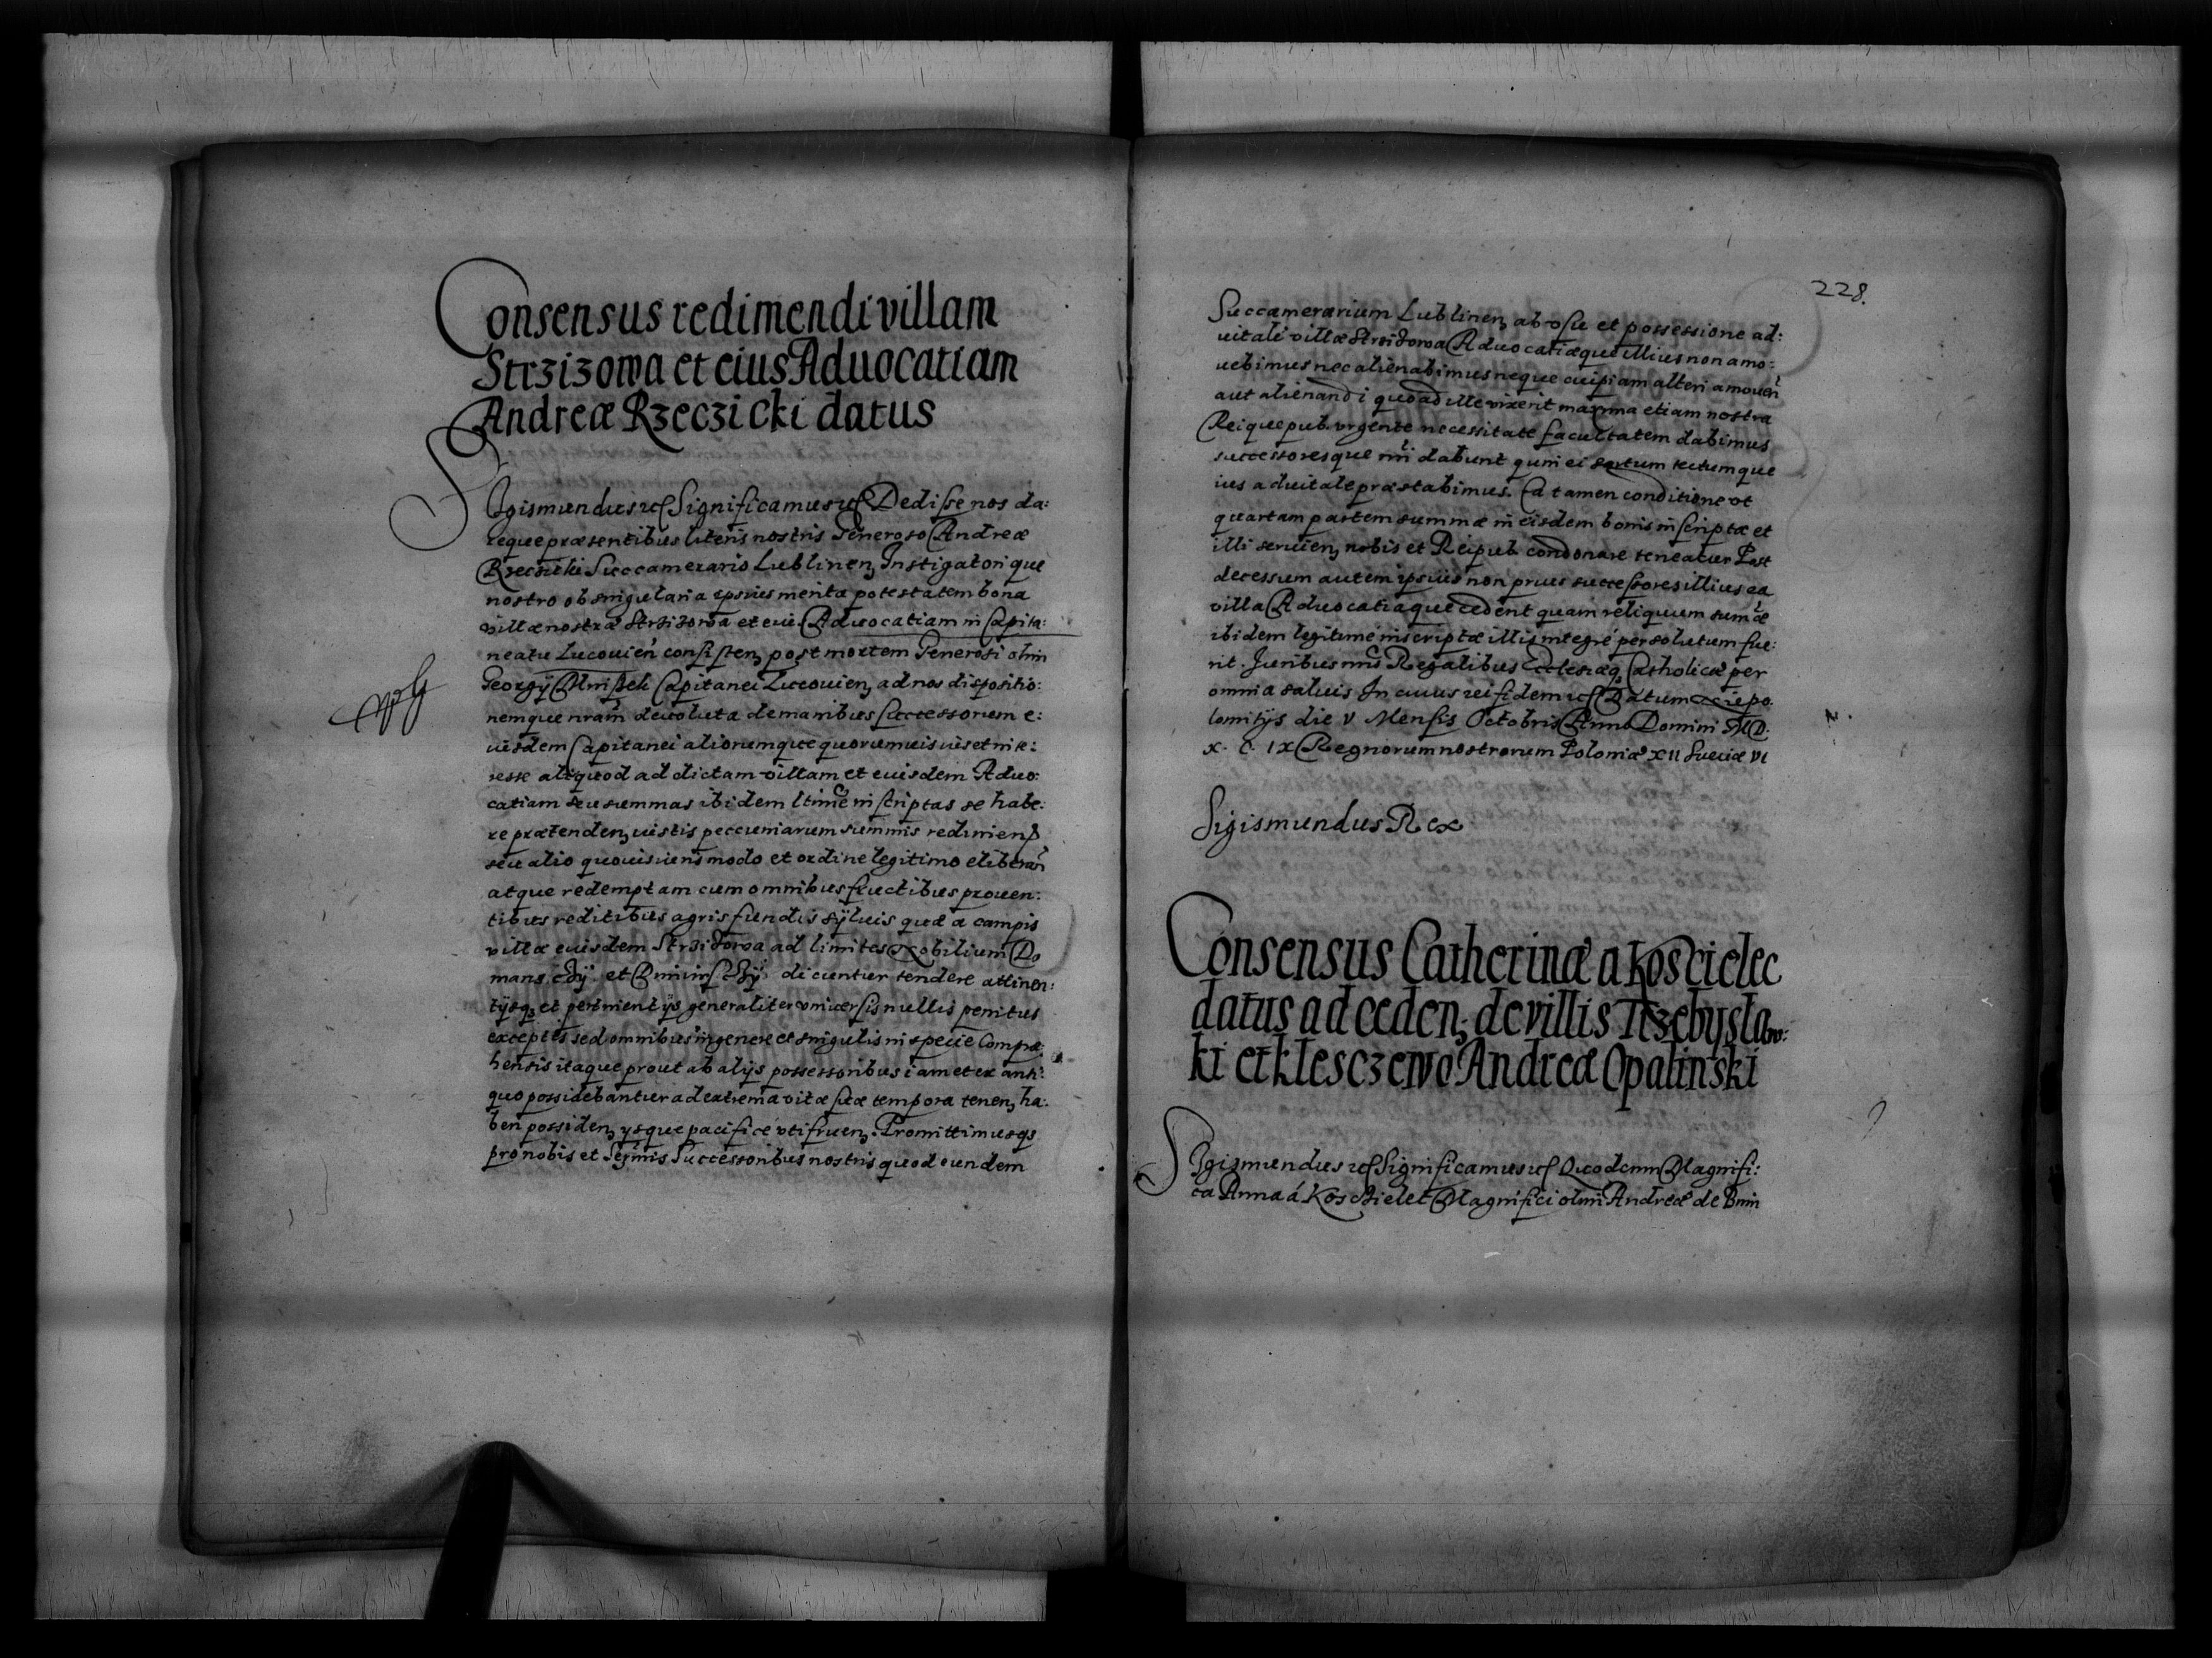 Consensus redimendi villam
Strzizowa et eius Aduocatiam
Andreæ Rzeczicki datus
Sigismundus etc Significamus etc Dedisse nos da:
reque præsentibus literis nostris Generoso Andreæ
Rzeczicki Succamerario Lublinen, Instigatorique
nostro ob singularia ipsius merita potestatem bona
villæ nostræ Strzizowa et eius Aduocatiam in Capita:
neatu Lucouien consisten, post mortem Generosi olim
Georgij Mnissek Capitanei Lucouien, ad nos dispositio:
nemque nram deuoluta de manibus successorum e:
iusdem Capitanei aliorumque quorumuis ius et inte:
resse aliquod ad dictam villam et eiusdem Aduo:
catiam seu summas ibidem ltime inscriptas se habe:
re prætenden, iustis peccuniarum summis redimen
seu alio quouis iuris modo et ordine legitimo eliberan
atque redemptam cum omnibus fructibus prouen:
tibus reditibus agris fundis syluis quæ a campis
villæ eiusdem Strzizowa ad limites Nobilium Do
manschij et dicuntur tendere attinen:
tijsq, et pertinentijs generaliter vniuersis nullis penitus
exceptis sed omnibus in genere et singulis in specie Compræ:
hensis itaque prout ab alijs possessoribus iam et ex anti:
quo possidebantur ad extrema vitæ suæ tempora tenen, ha:
ben possiden, ijsque pacifice vtifruen, Promittimusq,
pro nobis et Sermis Successoribus nostris quod eundem
228.
Succamerarium Lublinen, ab vsu et possessione ad:
uitali villæ Strzizowa Aduocatiæque illius non amo:
uebimus nec alienabimus neque cuipiam alteri amouen
aut alienandi quoad ille vixerit maxima etiam nostra
Reiquepub. vrgente necessitate facultatem dabimus
successoresque nri dabunt quin ei sartum tectumque
ius aduitale præstabimus. Ea tamen conditione vt
quartam partem summæ in eisdem bonis inscriptæ et
illi seruien, nobis et Reipub. condonare teneatur Post
decessum autem ipsius non prius successores illius ea
villa Aduocatiaque cedent quam reliquum sumæ
ibidem legitime inscriptæ illis integre persolutum fue:
rit. Juribus nris Regalibus Ecclesiæq, Catholicæ per
omnia saluis In cuius rei fidem etc Datum Niepo
lomitijs die V Mensis Octobris Anno Domini MD.
X. C. IX Regnorum nostrorum Poloniæ XII Sueciæ VI
Sigismundus Rex
Consensus Catherinæ a Koscielec
datus ad ceden, de villis Trzebyslaw:
ki et Klesczewo Andreæ Opalinski
Sigismundus etc Significamus etc Quod cum Magnifi:
ca Anna á Koscielet Magnifici olim Andreæ de Bnin